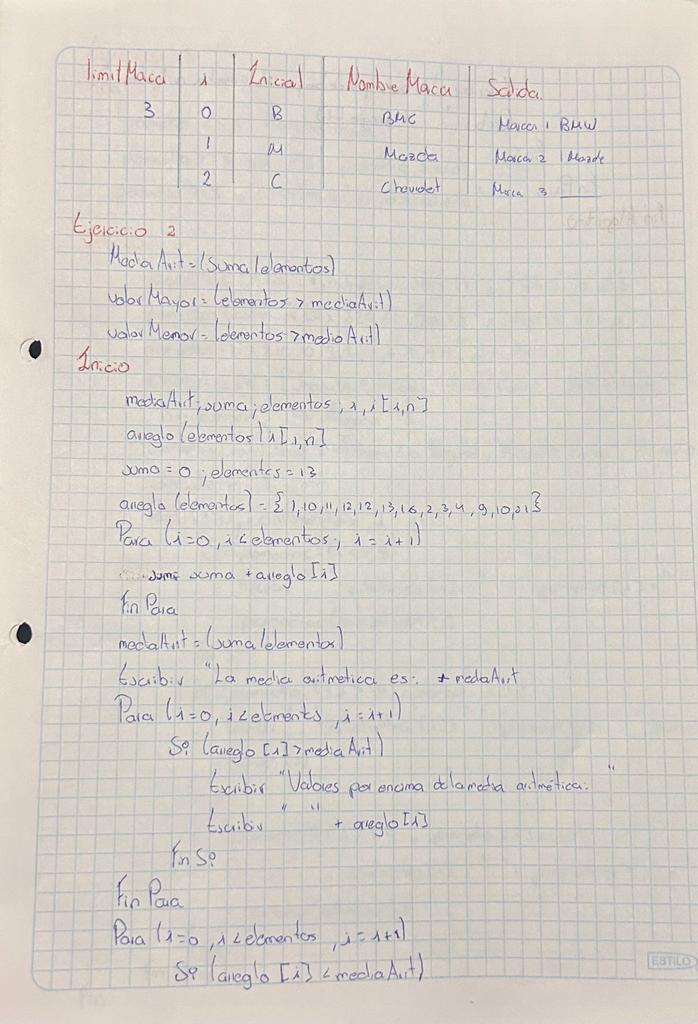 limitMarca i Inicial Nombre Marca Salida
3 0 B BMC Marca 1 BMW
1 M Mazda Marca 2 Mazda
2 C Chevrolet Marca 3 ____
Ejercicio 2
Media Arit = (suma/elementos)
valor Mayor = (elementos > mediaArit)
valor Menor = (elementos > media Arit)
Inicio
mediaArit; suma; elementos; i, i [1,n]
arreglo (elementos) i [1,n]
suma = 0 ; elementos = 13
arreglo (elementos) = { 1,10,11,12,12,13,16,2,3,4,9,10,21}
Para (i=0, i<elementos, i = i+1)
suma suma + arreglo [i]
Fin Para
mediaArit = (suma/elementos)
Escribir "La media aritmetica es: + mediaArit
Para (i=0, i<elementos, i=i+1)
Si (arreglo [i] > media Arit)
Escribir "Valores por encima de la media aritmética: "
Escribir " " + arreglo [i]
Fin Si
Fin Para
Para (i=0, i<elementos, i=i+1)
Si (arreglo [i] < mediaArit)
ESTILO